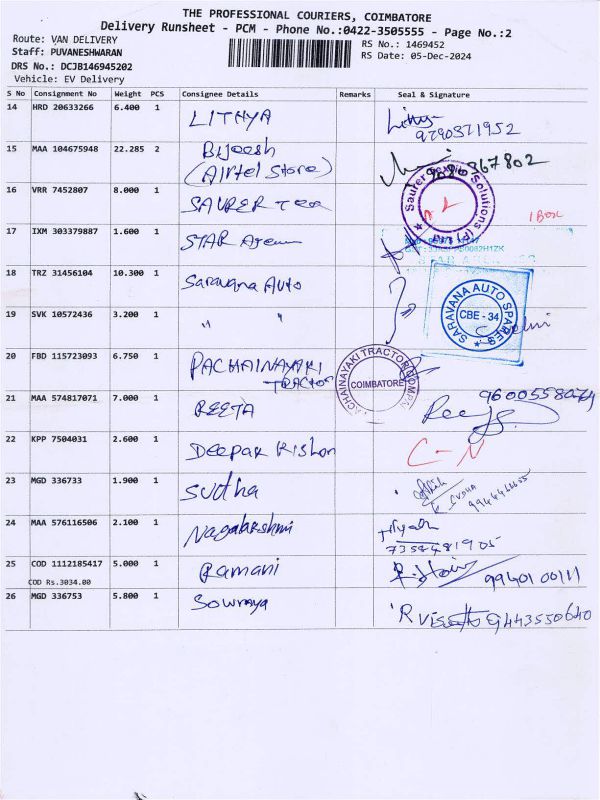 THE PROFESSIONAL COURIERS, COIMBATORE
Delivery Runsheet - PCM - Phone No.:0422-3505555 - Page No.:2
Route: VAN DELIVERY
RS No.: 1469452
Staff: PUVANESHWARAN
RS Date: 05-Dec-2024
DRS No.: DCJB146945202
Vehicle: EV Delivery
S No Consignment No Weight PCS Consignee Details Remarks Seal & Signature
14 HRD 20633266 6.400 1 LITHYA
9790371952
15 MAA 104675948 22.285 2 Bijeesh
(Airtel Store)
16 VRR 7452807 8.000 1 SAURER
1 Box
17 IXM 303379887 1.600 1 STAR
18 TRZ 31456104 10.300 1 Saravana Auto
SARAVANA AUTO SPARES
CBE - 34
19 SVK 10572436 3.200 1 " "
20 FBD 115723093 6.750 1 PACHAINAYAKI
TRACTOR
COIMBATORE
21 MAA 574817071 7.000 1 REETA
22 KPP 7504031 2.600 1 Deepak Kishon
C-N
23 MGD 336733 1.900 1 Sudha
24 MAA 576116506 2.100 1 Nagalakshmi
25 COD 1112185417 5.000 1 Ramani
99401 00111
COD Rs.3034.00
26 MGD 336753 5.800 1 Sowmya
9443550640